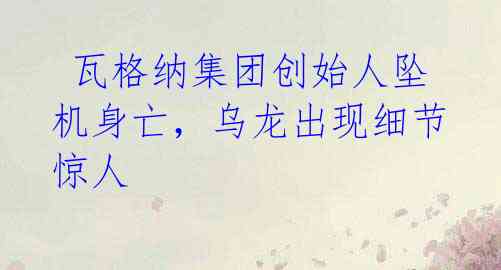 瓦格纳集团创始人坠
机身亡，乌龙出现细节
惊人